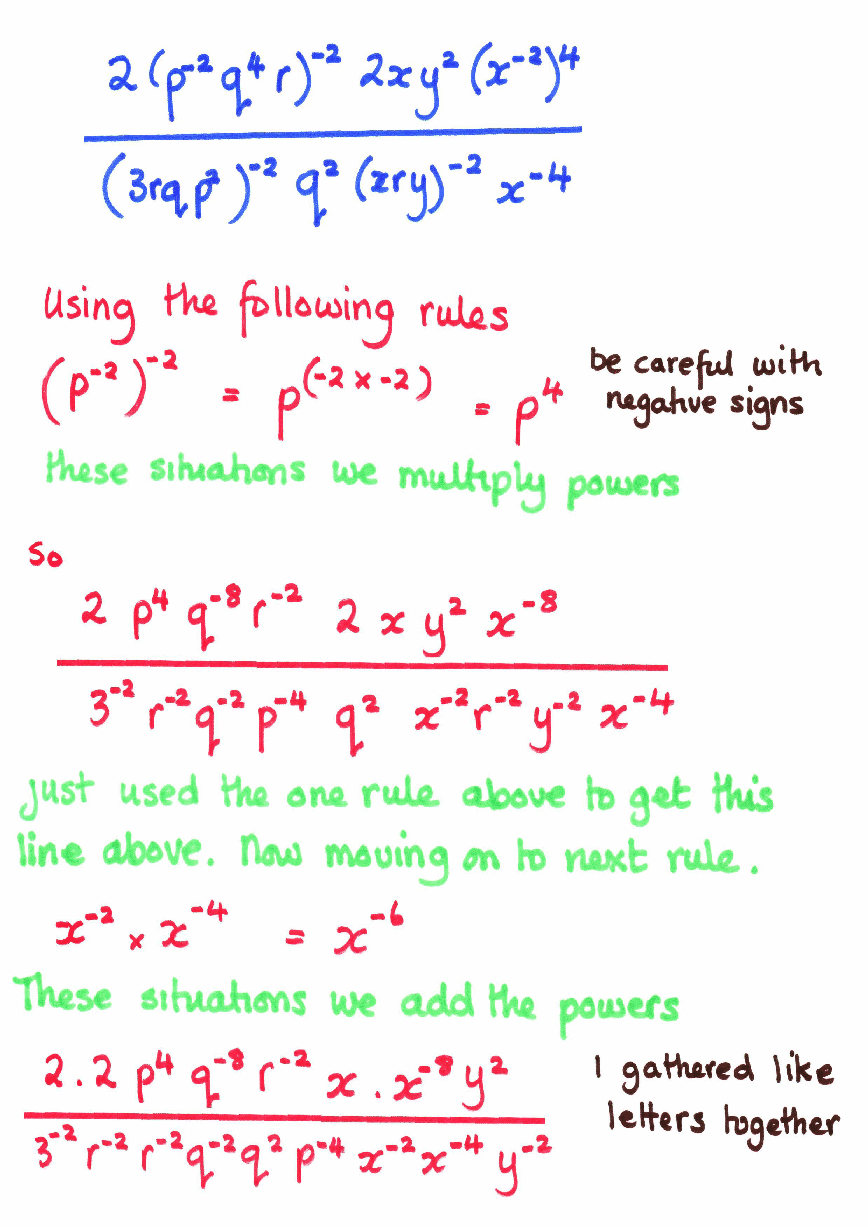 2(p⁻²q⁴r)⁻² 2xy²(x⁻²)⁴
(3rqp²)⁻² q² (xry)⁻² x⁻⁴
Using the following rules
(p⁻²)⁻² = p⁽⁻²ˣ⁻²⁾ = p⁴
be careful with
negative signs
these situations we multiply powers
so
2 p⁴ q⁻⁸ r⁻² 2 x y² x⁻⁸
3⁻² r⁻² q⁻² p⁻⁴ q² x⁻² r⁻² y⁻² x⁻⁴
just used the one rule above to get this
line above. Now moving on to next rule.
x⁻² × x⁻⁴ = x⁻⁶
These situations we add the powers
2.2 p⁴ q⁻⁸ r⁻² x . x⁻⁸ y²
3⁻² r⁻² r⁻² q⁻² q² p⁻⁴ x⁻² x⁻⁴ y⁻²
I gathered like
letters together